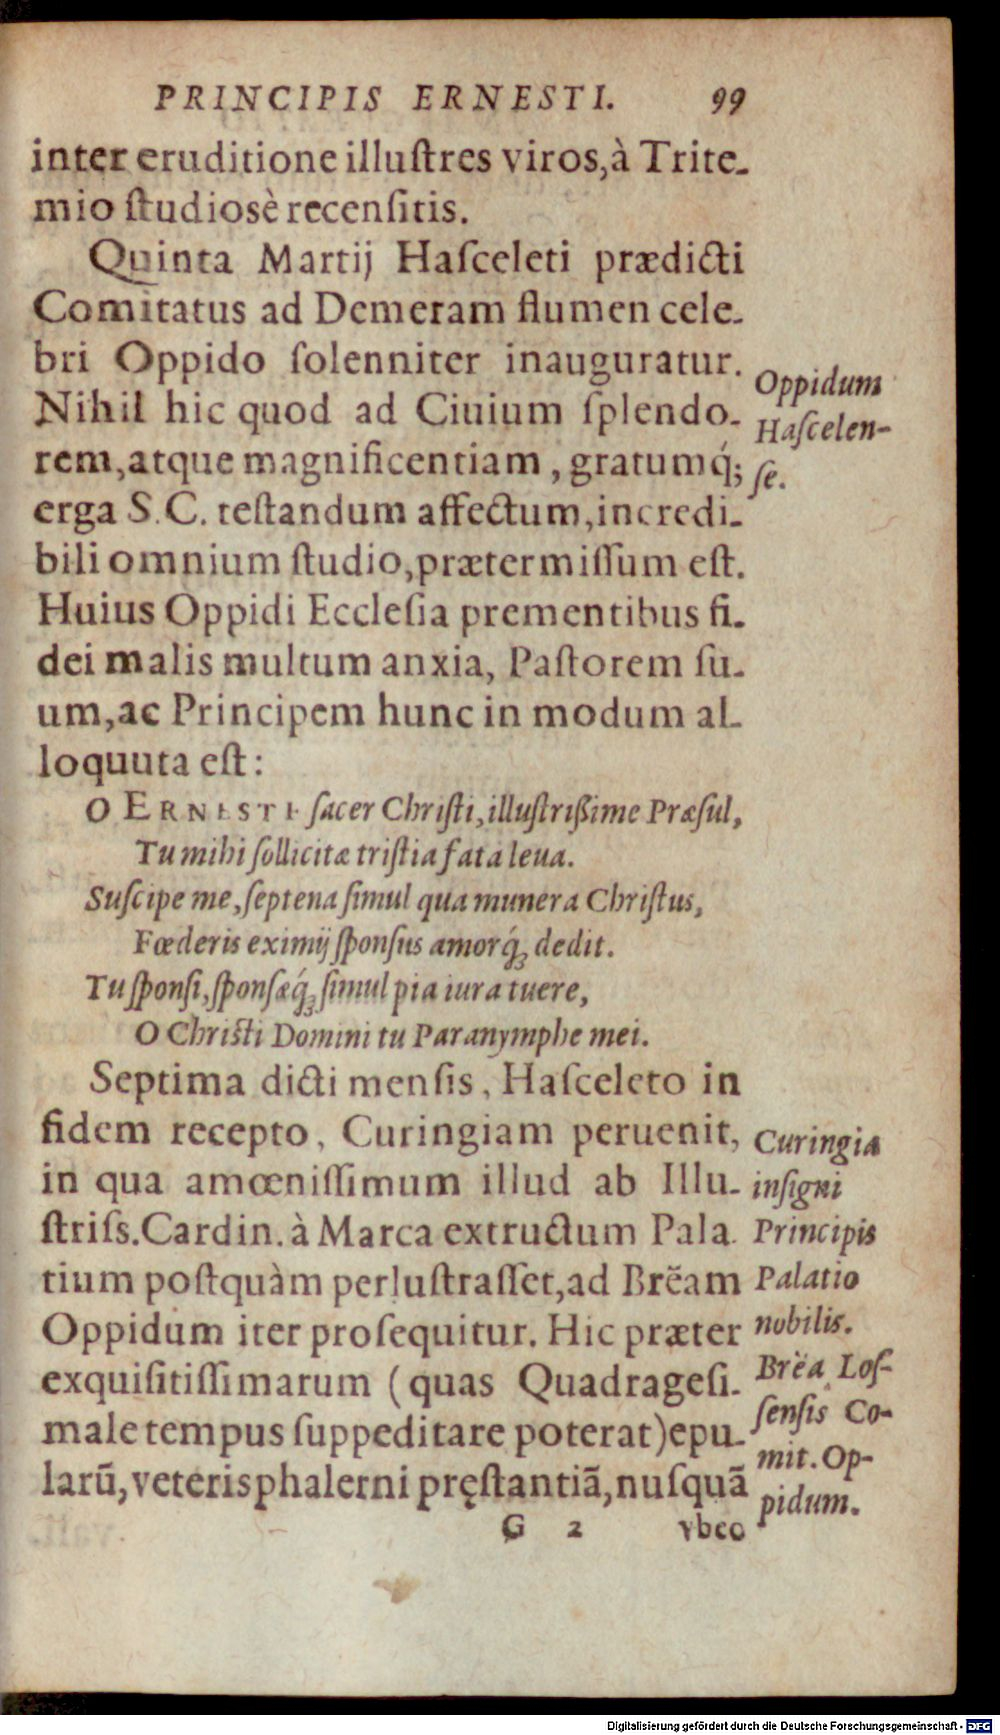 PRINCIPIS ERNESTI. 99
inter eruditione illuſtres viros, à Trite-
mio ſtudiosè recenſitis.
Quinta Martij Haſceleti prædicti
Comitatus ad Demeram flumen cele-
bri Oppido ſolenniter inauguratur.
Nihil hic quod ad Ciuium ſplendo-
rem, atque magnificentiam, gratumq́;
erga S.C. teſtandum affectum, incredi-
bili omnium ſtudio, prætermiſſum eſt.
Huius Oppidi Eccleſia prementibus fi-
dei malis multum anxia, Paſtorem ſu-
um, ac Principem hunc in modum al-
loquuta eſt:
Oppidum
Haſcelen-
ſe.
O ERNESTE ſacer Chriſti, illuſtrißime Præſul,
Tu mihi ſollicitæ triſtia fata leua.
Suſcipe me, ſeptena ſimul qua munera Chriſtus,
Fœderis eximij ſponſus amorq́ꝫ dedit.
Tu ſponſi, ſponſæq́ꝫ ſimul pia iura tuere,
O Chriſti Domini tu Paranymphe mei.
Septima dicti menſis, Haſceleto in
fidem recepto, Curingiam peruenit,
in qua amœniſſimum illud ab Illu-
ſtriſs. Cardin. à Marca extructum Pala-
tium poſtquàm perluſtraſſet, ad Brëam
Oppidum iter proſequitur. Hic præter
exquiſitiſſimarum (quas Quadrageſi-
male tempus ſuppeditare poterat) epu-
larũ, veteris phalerni pręſtantiã, nuſquã
Curingia
inſigni
Principis
Palatio
nobilis.
Brëa Loſ-
ſenſis Co-
mit. Op-
pidum.
G 2 vbeo
Digitalisierung gefördert durch die Deutsche Forschungsgemeinschaft - DFG